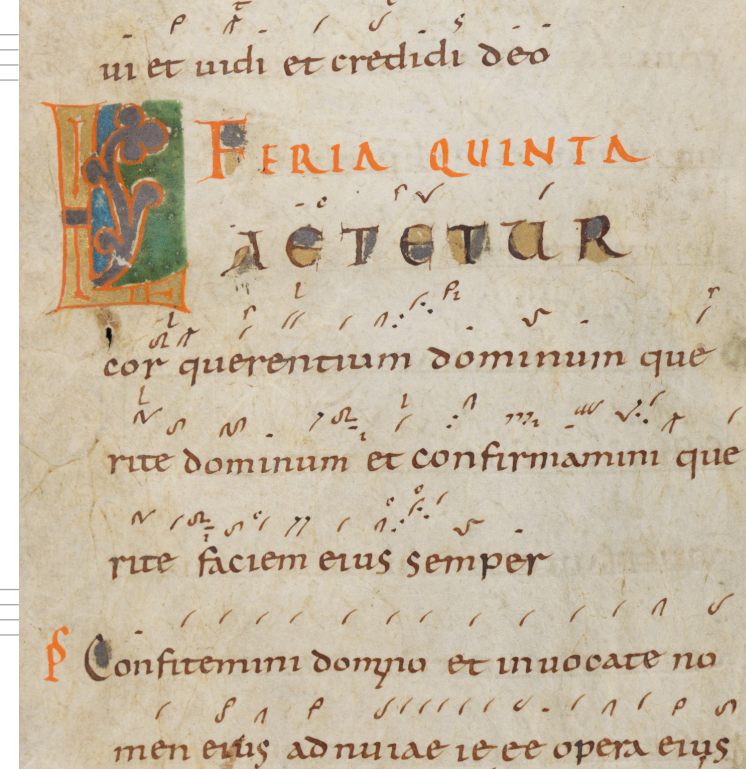 ui et uidi et credidi deo
FERIA QUINTA
LAETETUR
cor querentium dominum que
rite dominum et confirmamini que
rite faciem eius semper
PS Confitemini domno et inuocate no
men eius
opera eius